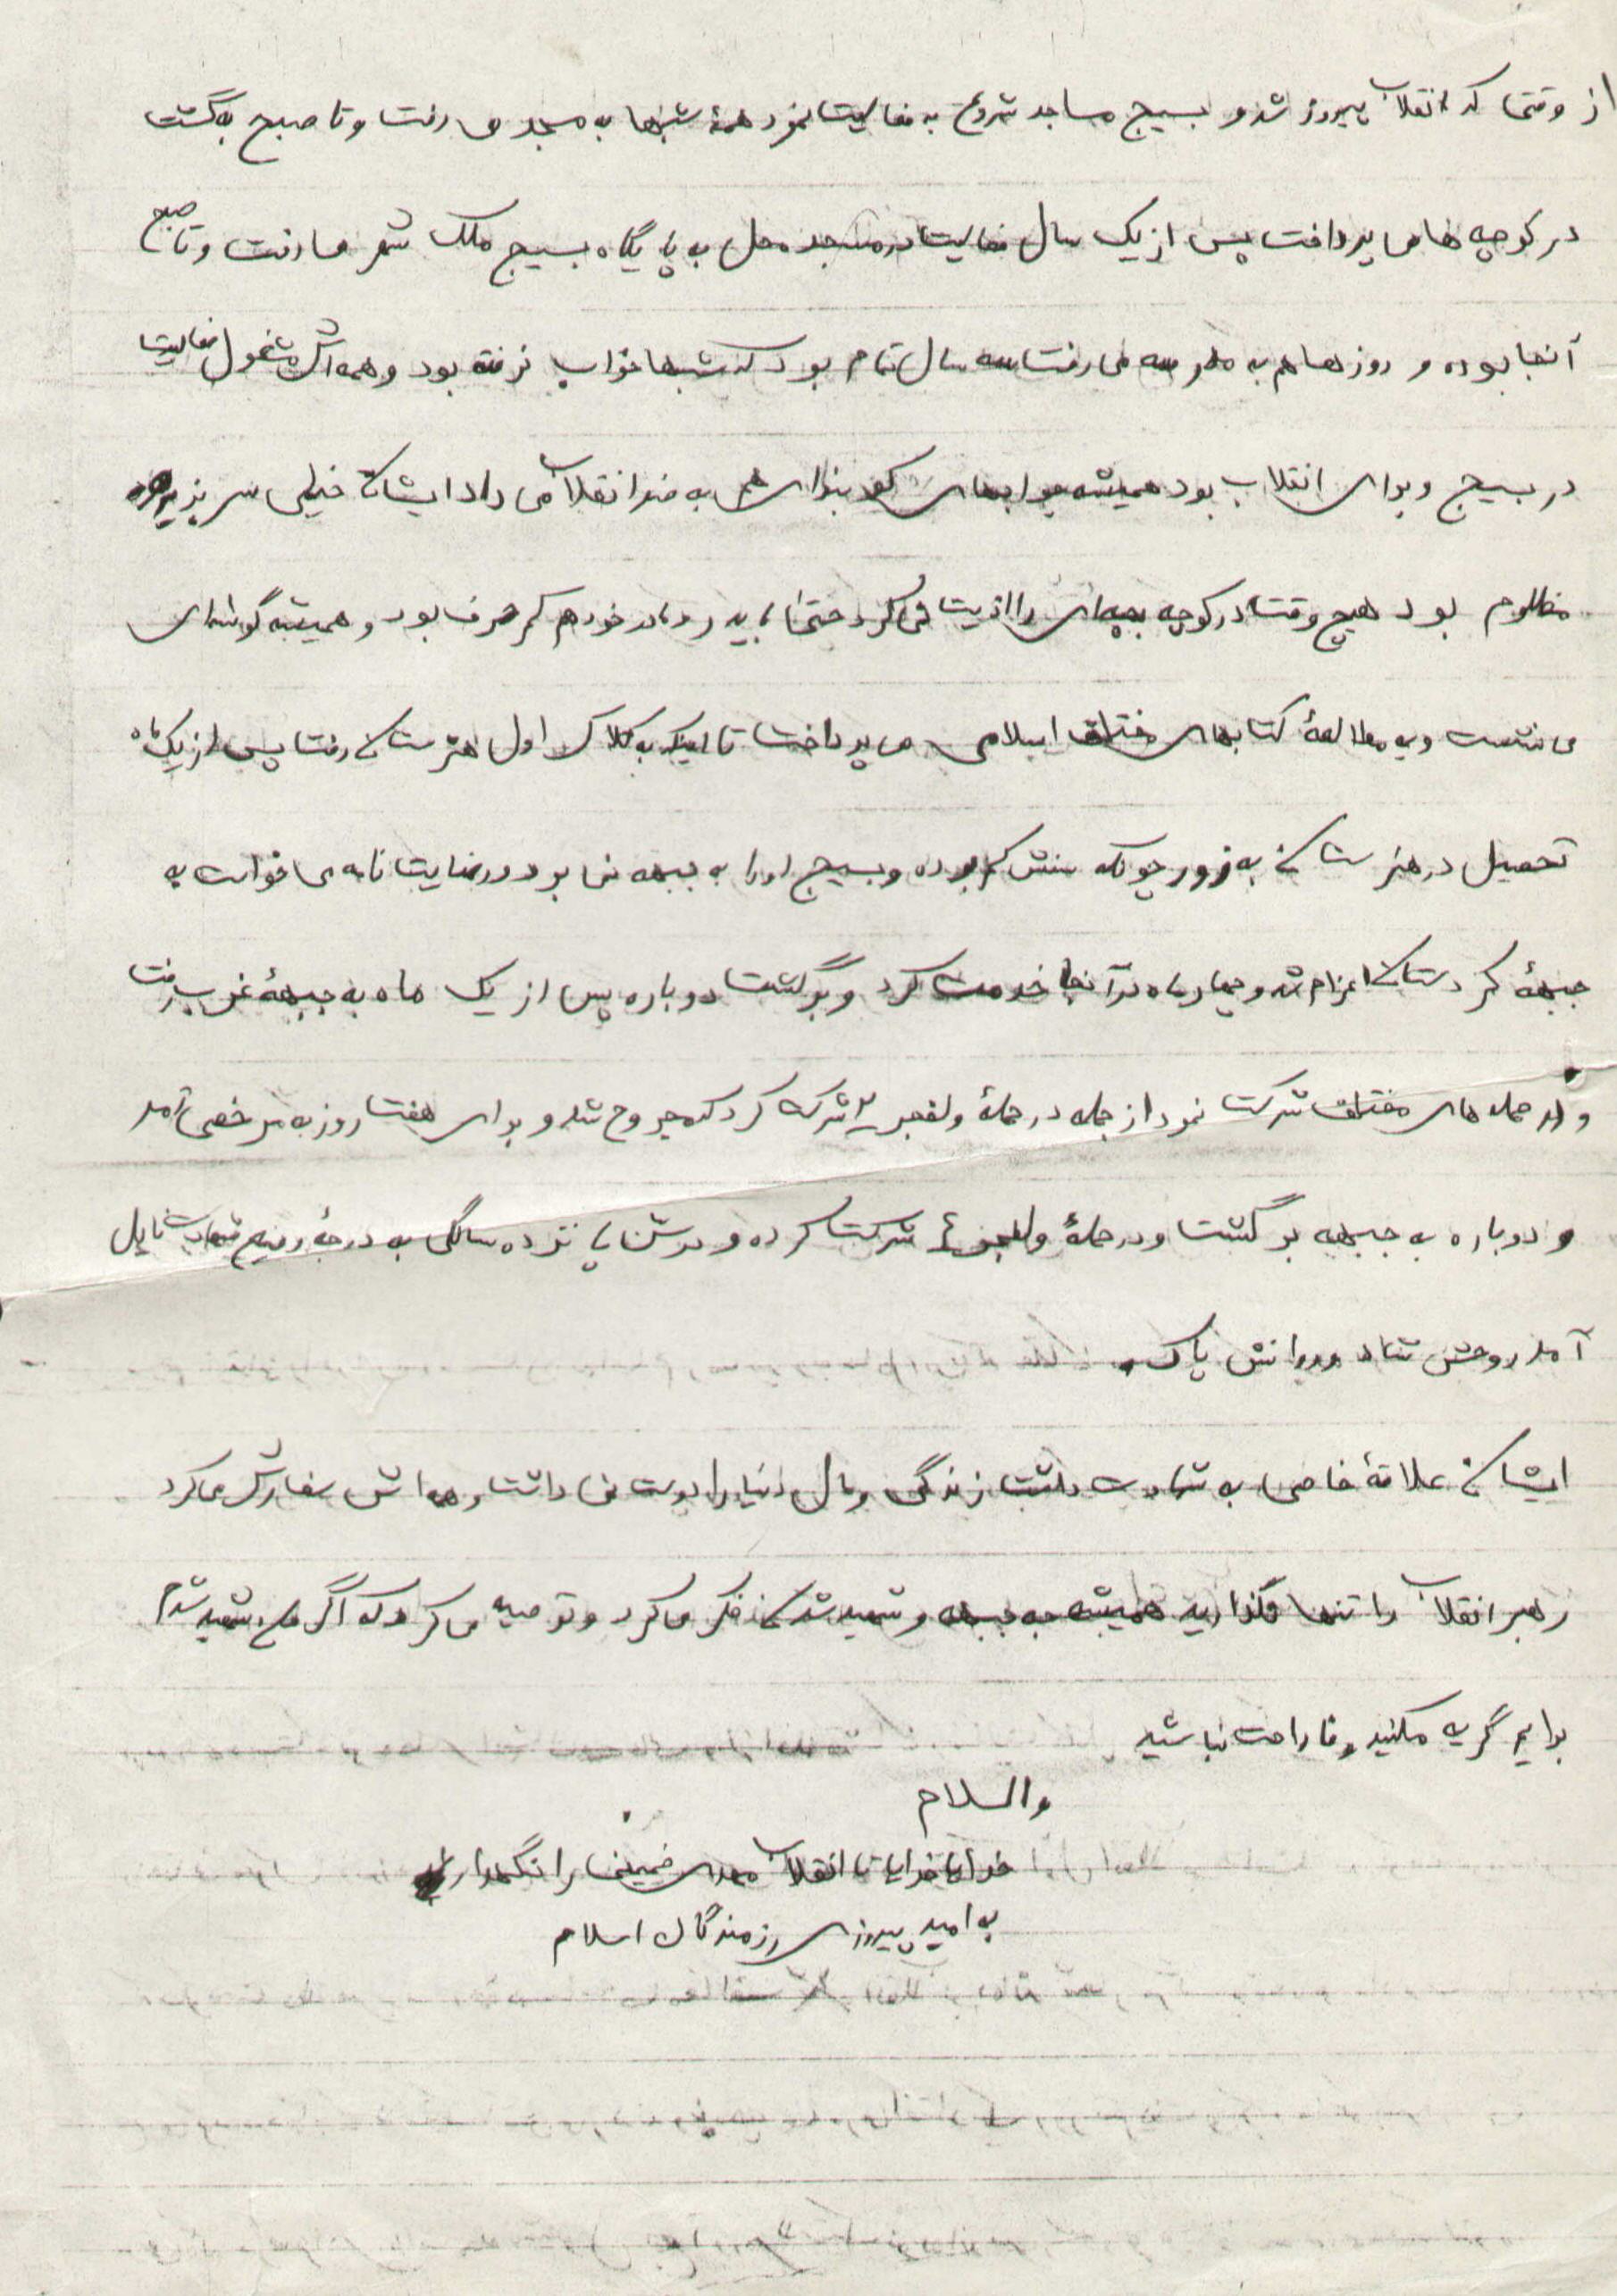 از وقتی که انقلاب پیروز شد و بسیج مساجد شروع به فعالیت نمود همۀ شبها به مسجد می رفت و تا صبح به گشت
در کوچه ها می پرداخت پس از یک سال فعالیت در مسجد محل به پایگاه بسیج ملک شهر می رفت و تا صبح
آنجا بوده و روزها هم به مدرسه می رفت سه سال تمام بود که شبها خواب نرفته بود و همه اش مشغول فعالیت
در بسیج و برای انقلاب بود همیشه جوابهای کوبنده‌ای به ضد انقلاب می داد ایشان خیلی سر بزیر و
مظلوم بود هیچ وقت در کوچه بچه‌ای را اذیت نمی کرد حتی با پدر و مادر خود هم کم حرف بود و همیشه گوشه‌ای
می نشست و به مطالعۀ کتابهای مختلف اسلامی می پرداخت تا اینکه به کلاس اول هنرستان رفت پس از یک ماه
تحصیل در هنرستان به زور چونکه سنش کم بوده و بسیج او را به جبهه نمی برد و رضایت نامه می خواست به
جبهۀ کردستان اعزام شد و چهار ماه در آنجا خدمت کرد و برگشت دوباره پس از یک ماه به جبهۀ غرب رفت
و در حمله های مختلف شرکت نمود از جمله در حملۀ ولفجر ۲ شرکت کرد که مجروح شد و برای هفت روز به مرخصی آمد
و دوباره به جبهه برگشت و در حملۀ ولفجر ۴ شرکت کرده و در سن پانزده سالگی به درجۀ رفیع شهادت نایل
آمد روحش شاد و روانش پاک.
ایشان علاقۀ خاصی به شهادت داشت زندگی و مال دنیا را دوست نمی داشت و همه اش سفارش می کرد
رهبر انقلاب را تنها نگذارید همیشه به جبهه و شهید شدن فکر می کرد و توصیه می کرد که اگر من شهید شدم
برایم گریه مکنید و ناراحت نباشید
والسلام
خدایا خدایا تا انقلاب مهدی خمینی را نگهدار
به امید پیروزی رزمندگان اسلام